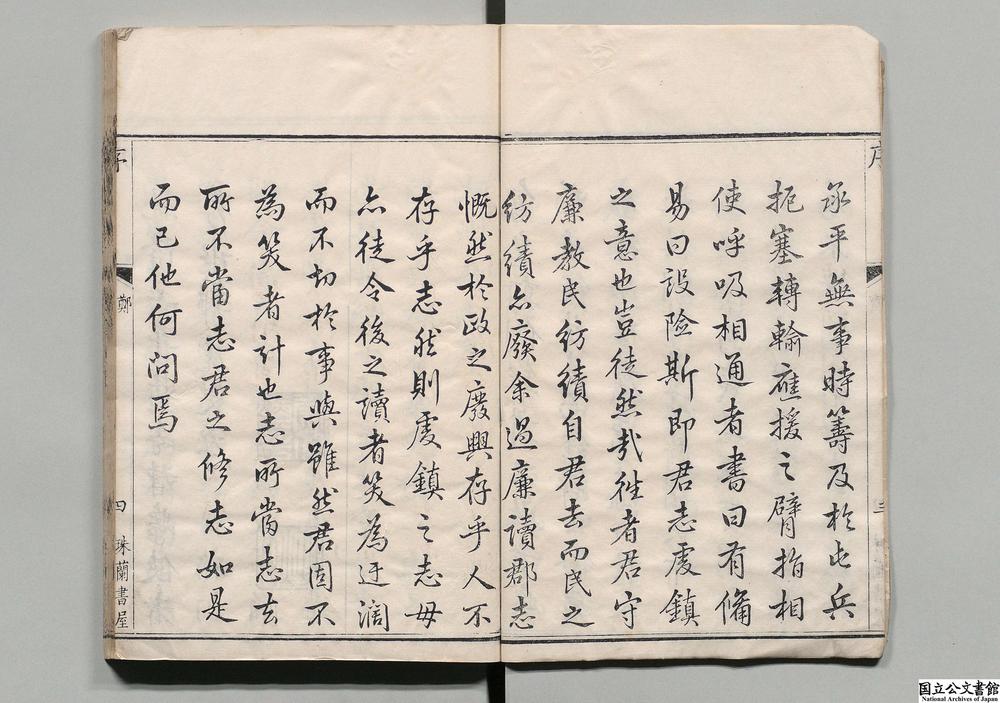 序
三
承平無事時籌及於屯兵
扼塞轉輸應援之臂指相
使呼吸相通者書曰有備
易曰設险斯即君志虔鎮
之意也豈徒然哉徃者君守
廉教民紡績自君去而民之
紡績亦廢余過廉讀郡志
慨然於政之廢興存乎人不
存乎志然則虔鎮之志毋
亦徒令後之讀者笑為迂濶
而不切於事與雖然君固不
為笑者計也志所當志去
所不當志君之修志如是
而已他何問焉
序
鄭
四
珠蘭書屋
国立公文書館
National Archives of Japan